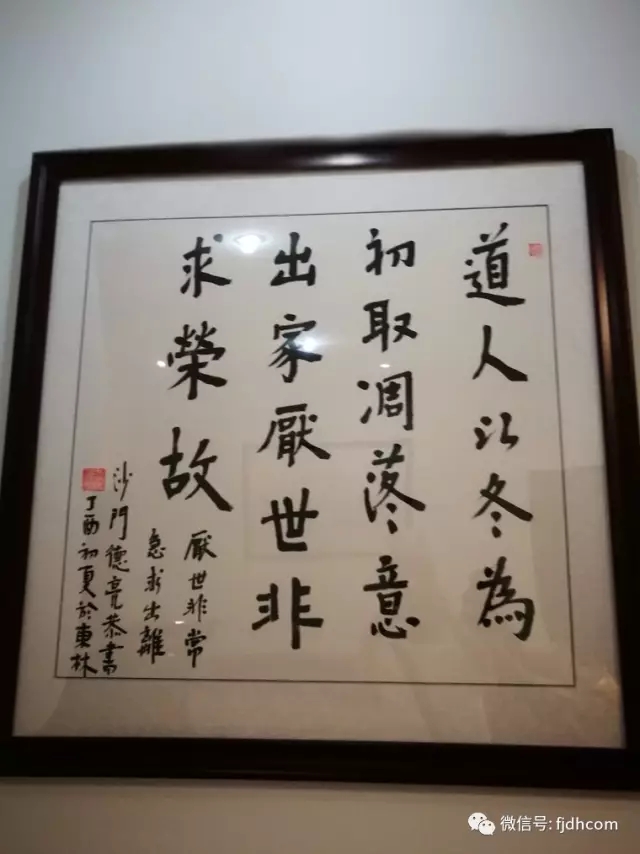 道人以冬為
初取凋落意
出家厭世非
求榮故
厭世非常
急求出離
沙門德亮恭書
丁酉初夏於東林
微信号: fjdhcom